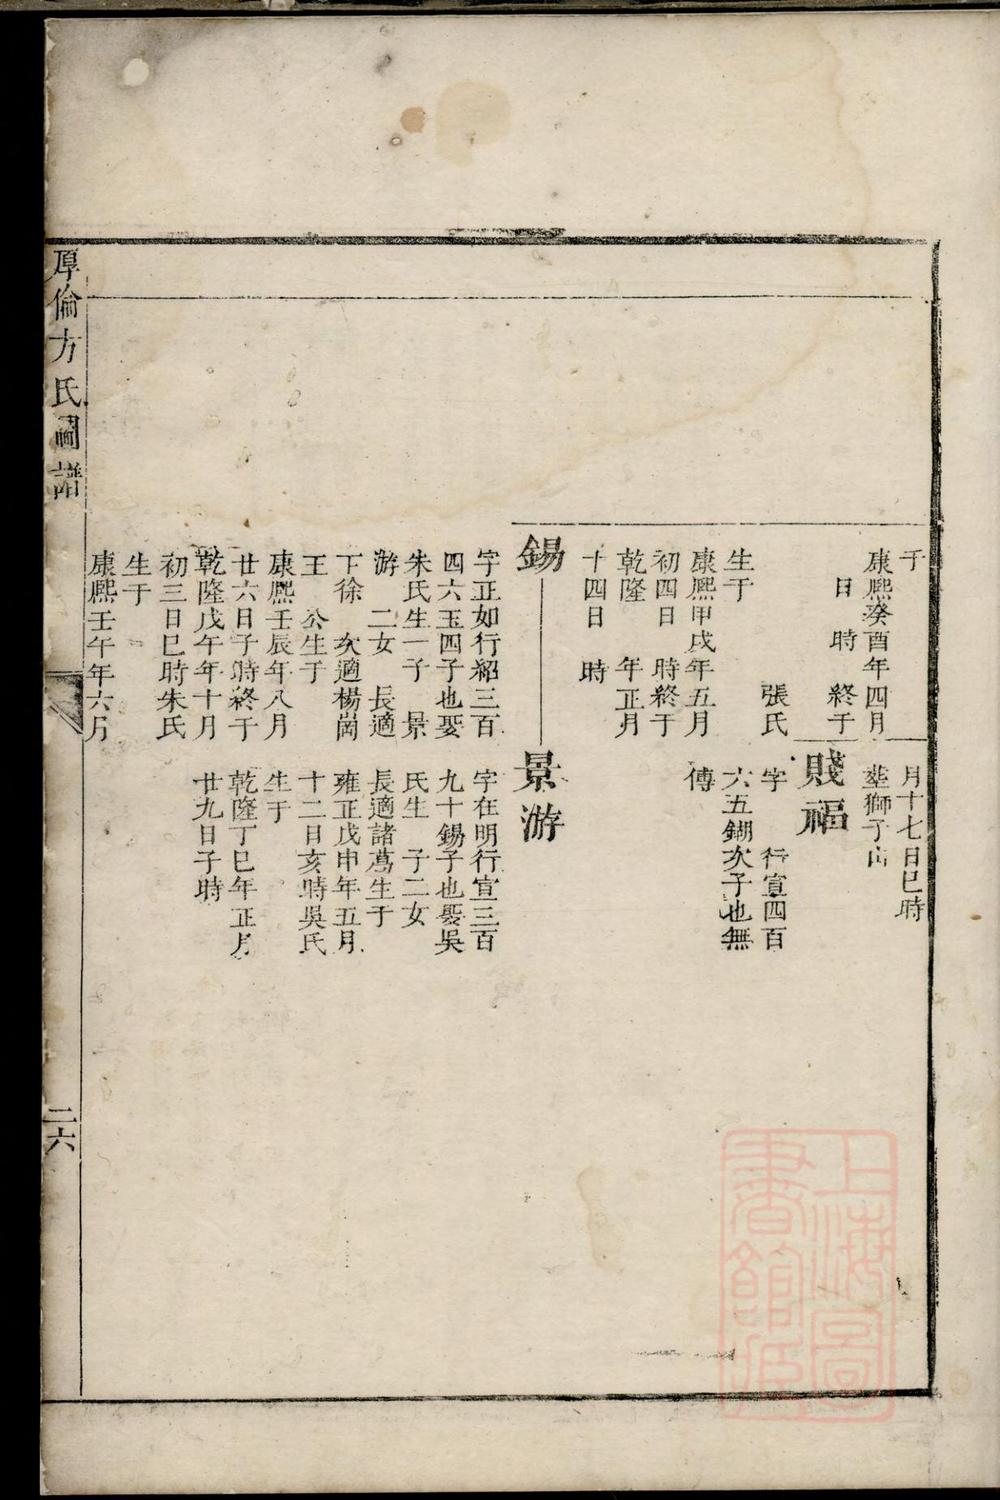 于
康熙癸酉年四月
日 時 終于
張氏
生于
康熙甲戌年五月
初四日 時終于
乾隆 年正月
十四日 時
錫
字正如行紹三百
四六玉四子也娶
朱氏生一子 景
游 二女 長適
下徐 次適楊崗
王 公生于
康熙壬辰年八月
廿六日子時終于
乾隆戊午年十月
初三日巳時朱氏
生于
康熙壬午年六月
月十七日巳時
塟獅子山
賤福
字 行宣四百
六五鍸次子也無
傳
景游
字在明行宣三百
九十錫子也娶吳
氏生 子二女
長適諸葛生于
雍正戊申年五月
十二日亥時吳氏
生于
乾隆丁巳年正月
廿九日子時
厚倫方氏圖譜
二六
上海圖
書館藏